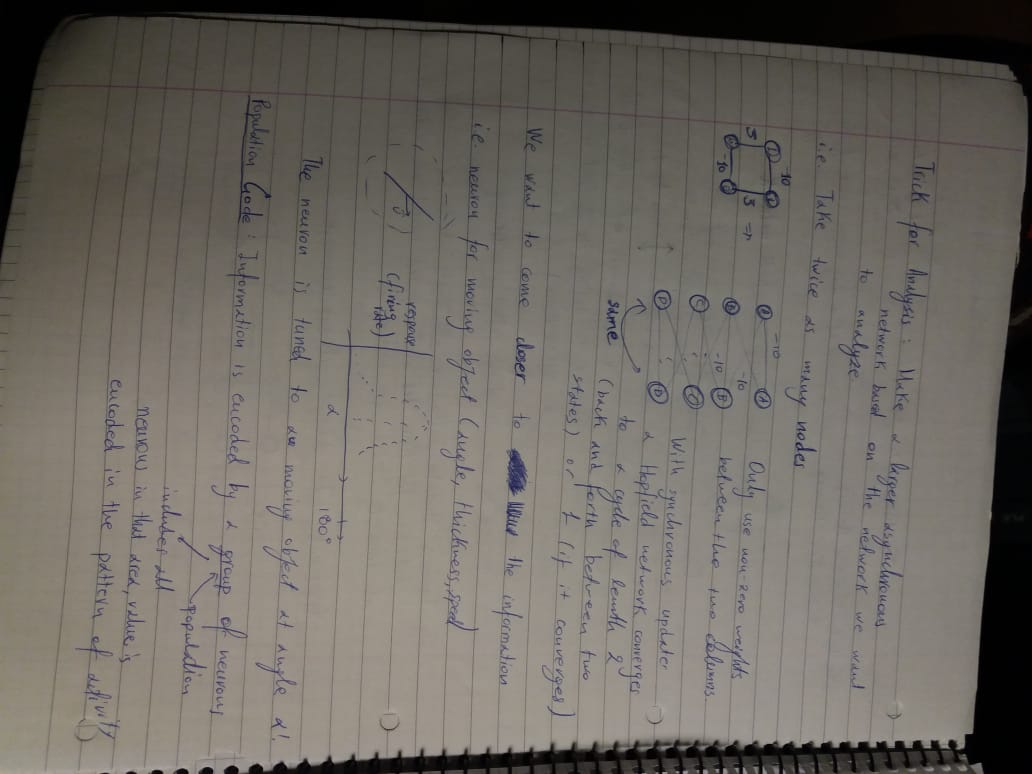 Trick for Analysis: Make a larger asynchronous
network based on the network we want
to analyze.
i.e. Take twice as many nodes
-10
3 3 =>
-10
A -10 A
B -10 B
C -10 C
D D
same
Only use non-zero weights
between the two columns.
With synchronous updates
a Hopfield network converges
to a cycle of length 2
(back and forth between two
states) or 1 (if it converges)
We want to come closer to the information
i.e. neuron for moving object (angle, thickness, speed)
response
(firing
rate)
α 180°
The neuron is tuned to a moving object at angle α!
Population Code: Information is encoded by a group of neurons
population
includes all
neurons in that area, value is
encoded in the pattern of activity